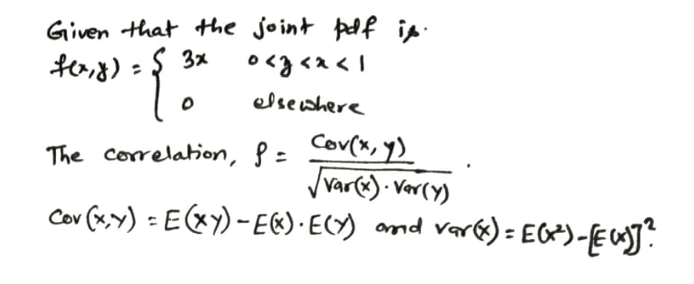 Given that the joint pdf is.
f(x,y) = { 3x 0<y<x<1
0 elsewhere
The correlation, ρ = Cov(x, y) / √Var(x) · Var(y) .
Cov (x,y) = E(xy) - E(x) · E(y) and var(x) = E(x²) - [E(x)]²